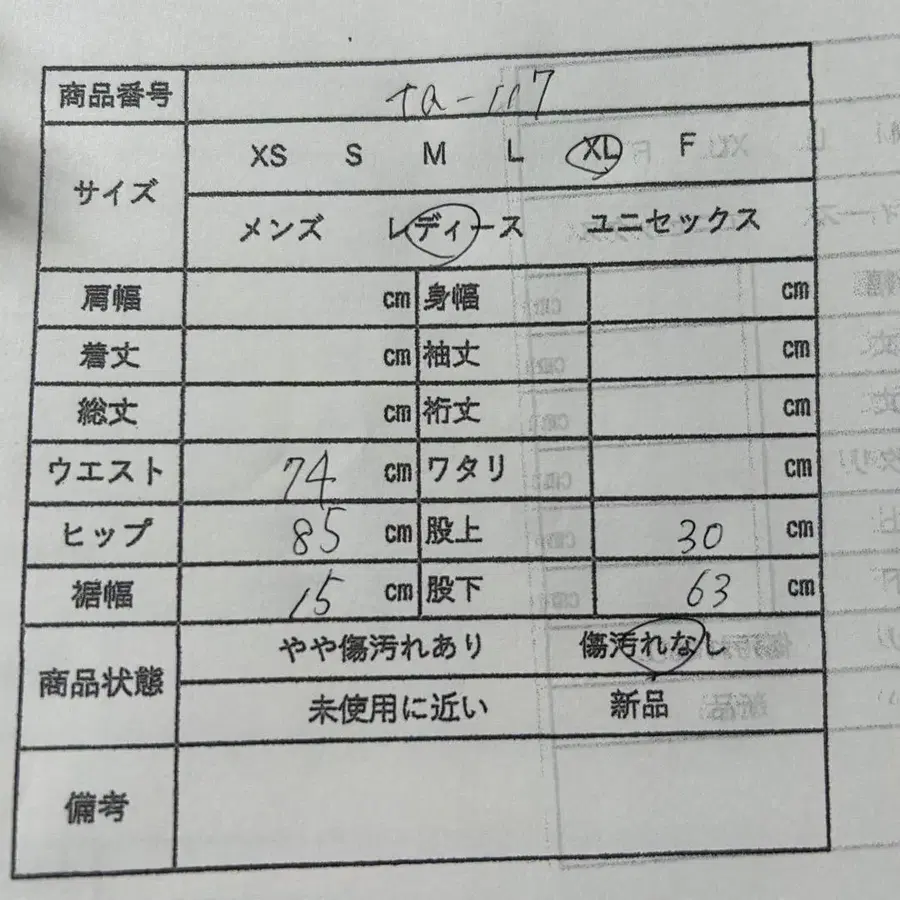 商品番号 ta-117
サイズ XS S M L XL F
メンズ レディース ユニセックス
肩幅 cm 身幅 cm
着丈 cm 袖丈 cm
総丈 cm 裄丈 cm
ウエスト 74 cm ワタリ cm
ヒップ 85 cm 股上 30 cm
裾幅 15 cm 股下 63 cm
商品状態 やや傷汚れあり 傷汚れなし
未使用に近い 新品
備考